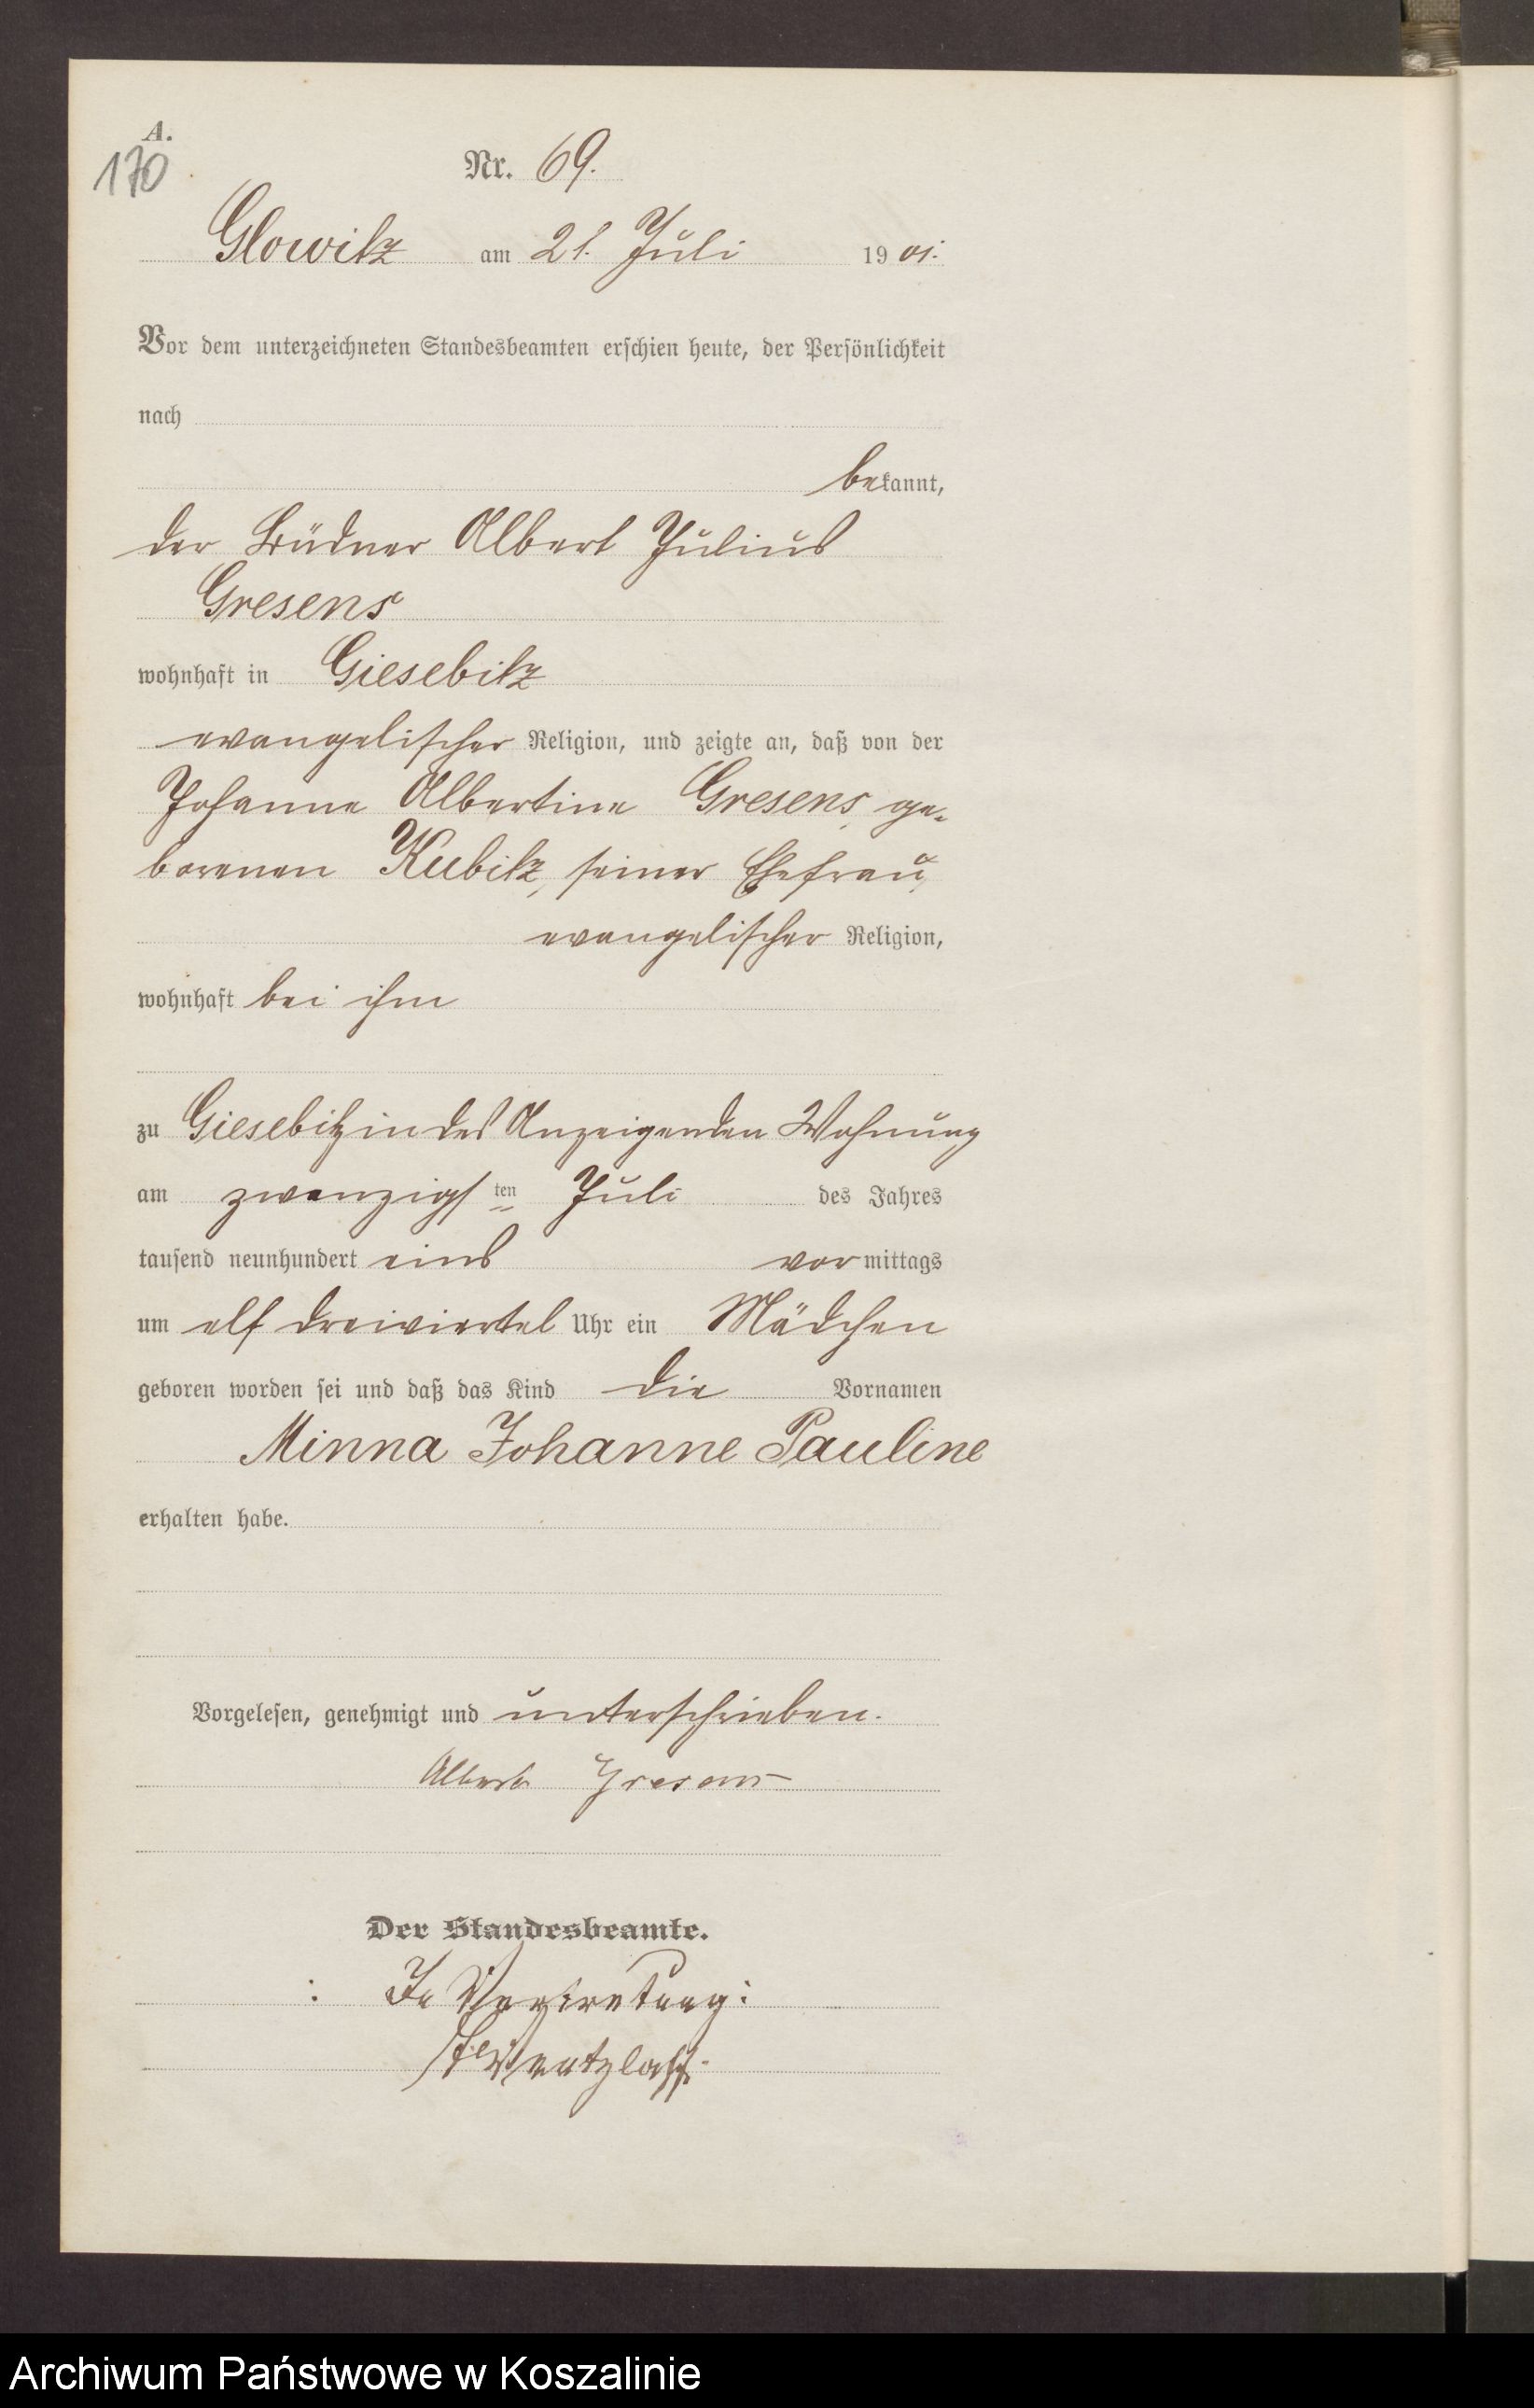 A.
170
Nr. 69.
Glowitz am 21. Juli 1901.
Vor dem unterzeichneten Standesbeamten erschien heute, der Persönlichkeit
nach
bekannt,
der Büdner Albert Julius
Gresens
wohnhaft in Giesebitz
evangelischer Religion, und zeigte an, daß von der
Johanne Albertine Gresens, ge-
borenen Kubitz, seiner Ehefrau,
evangelischer Religion,
wohnhaft bei ihm
zu Giesebitz in des Anzeigenden Wohnung
am zwanzigsten Juli des Jahres
tausend neunhundert eins vormittags
um elf dreiviertel Uhr ein Mädchen
geboren worden sei und daß das Kind die Vornamen
Minna Johanne Pauline
erhalten habe.
Vorgelesen, genehmigt und unterschrieben.
Albert Gresens
Der Standesbeamte.
In Vertretung:
Wentzlaff.
Archiwum Państwowe w Koszalinie